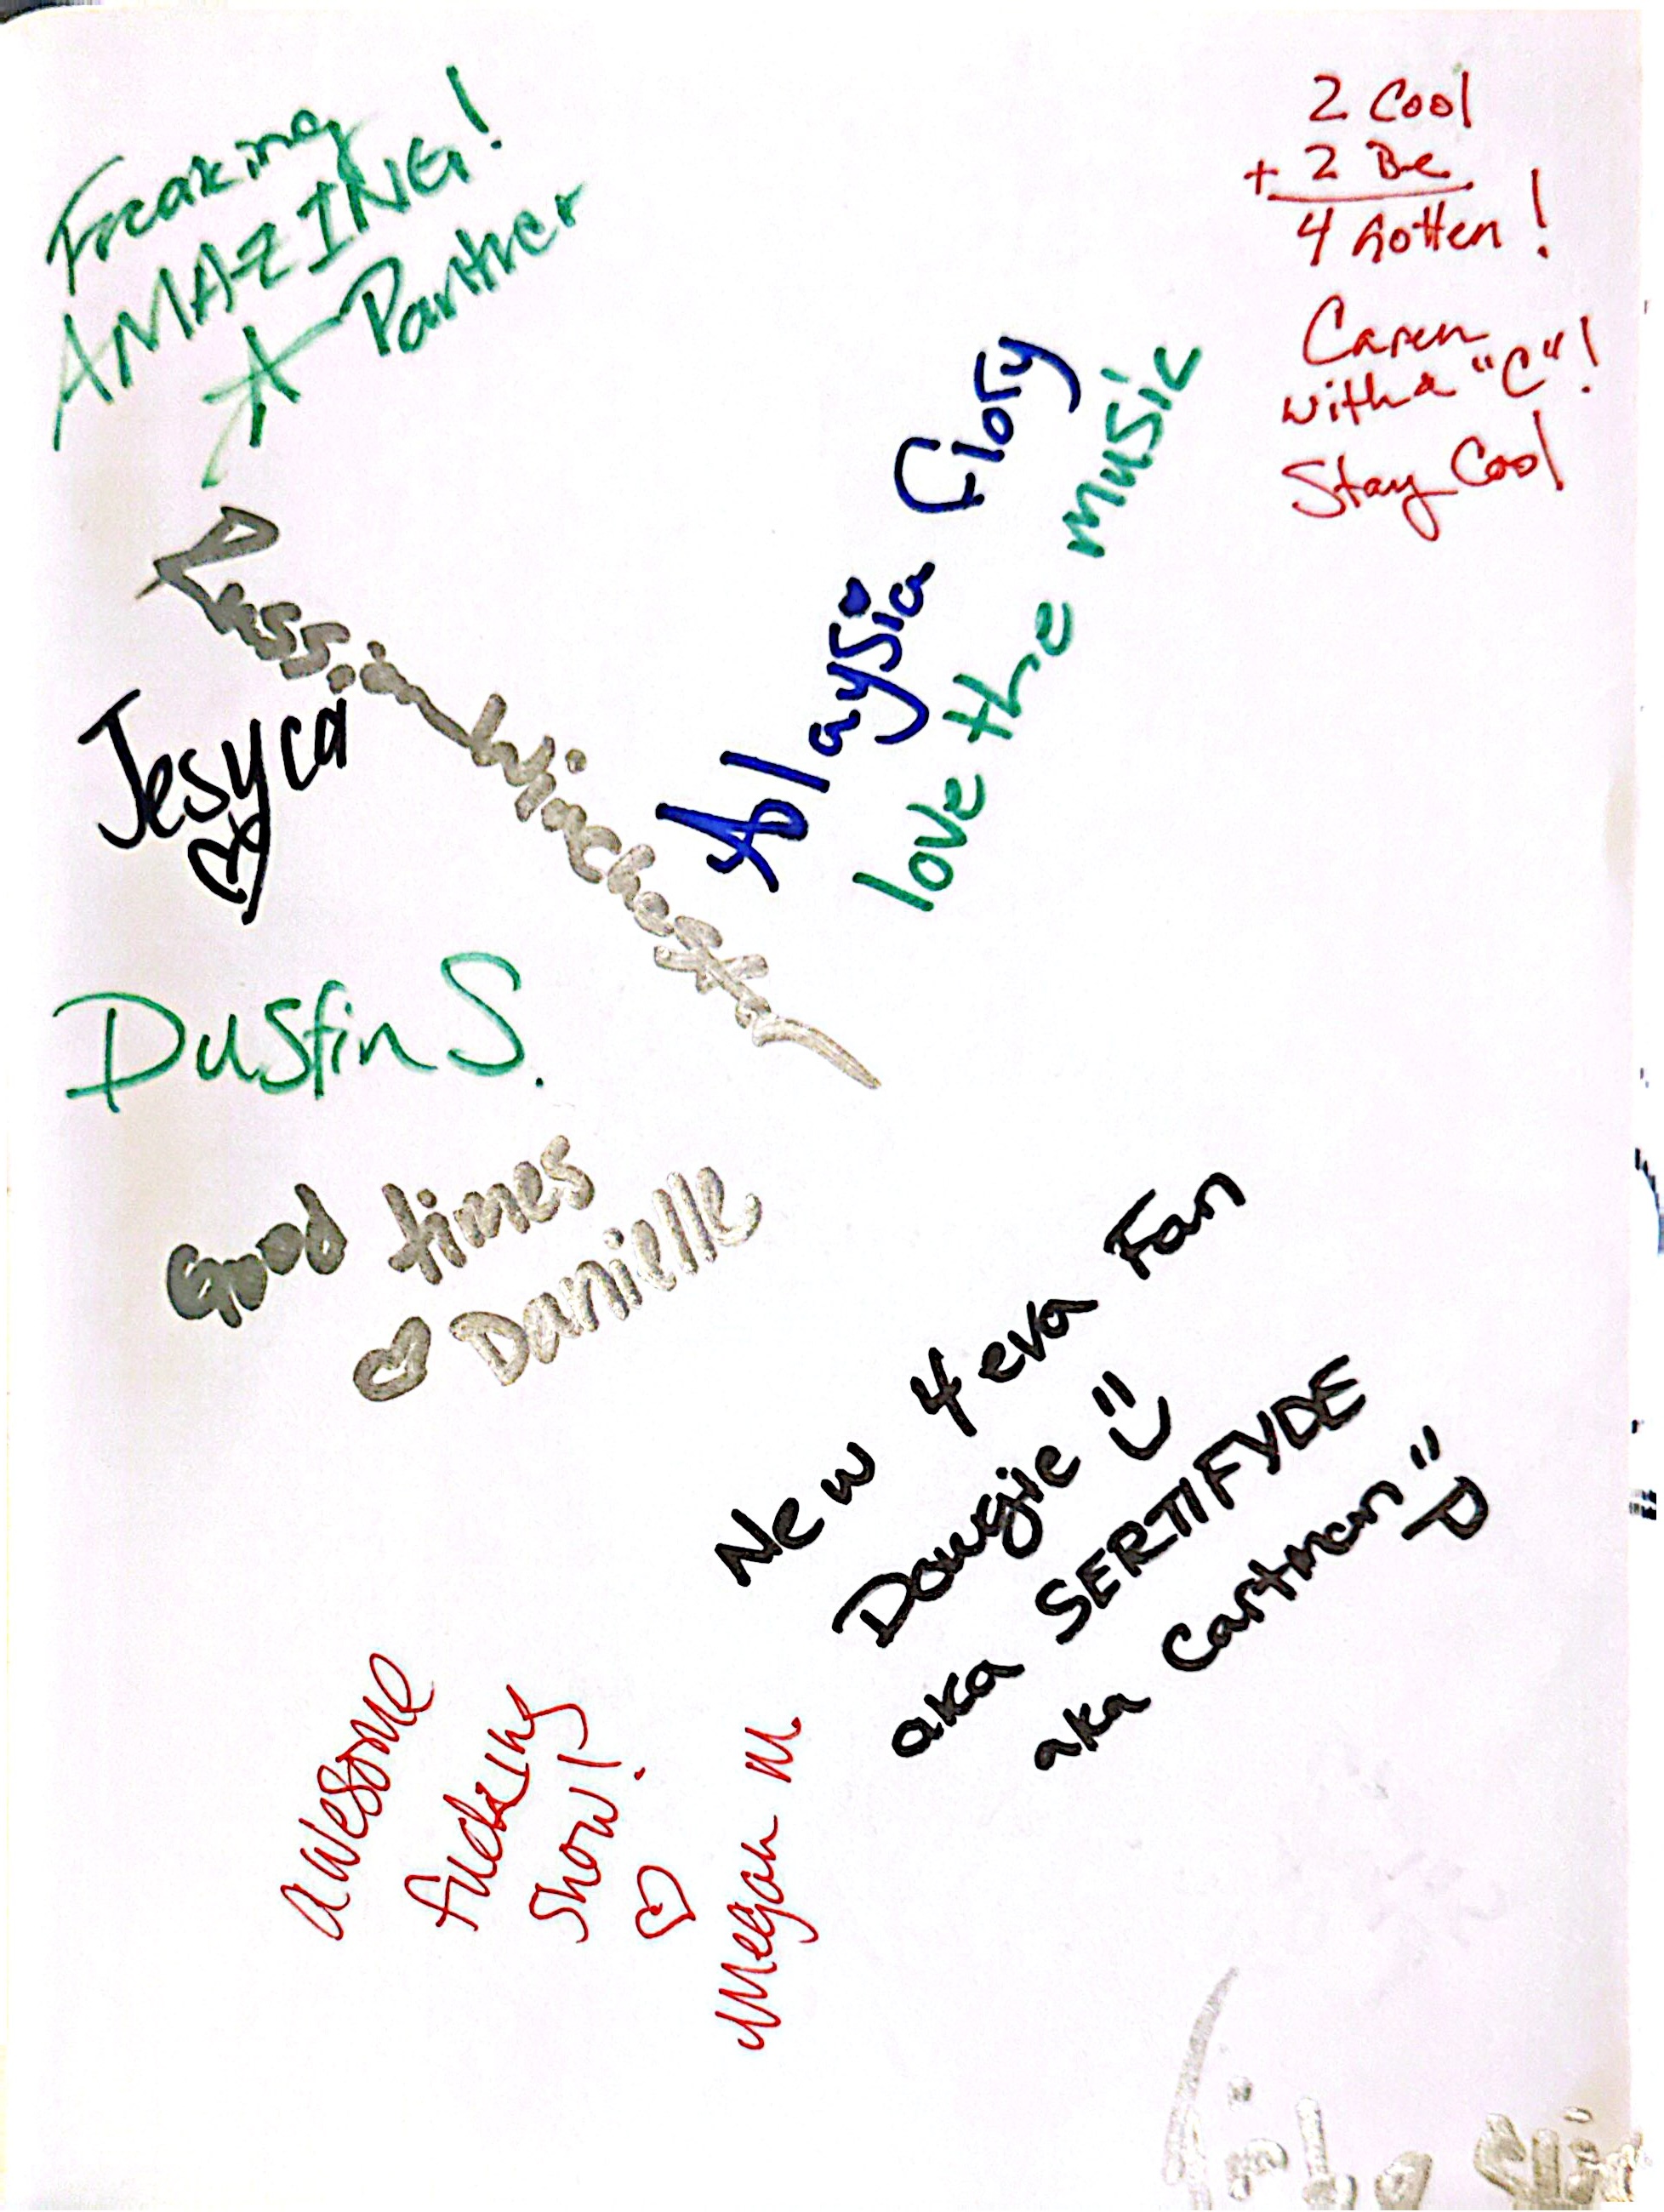 Freaking
AMAZING!
Panther
2 Cool
+ 2 Be
4 Gotten!
Caren
with a "C"!
Stay Cool
Jesyca
love the music
Dustin S.
Good times
Danielle
New 4 eva Fan
Dougie
aka SERTIFYDE
aka Cartman
awesome
fucking
show!
Megan M